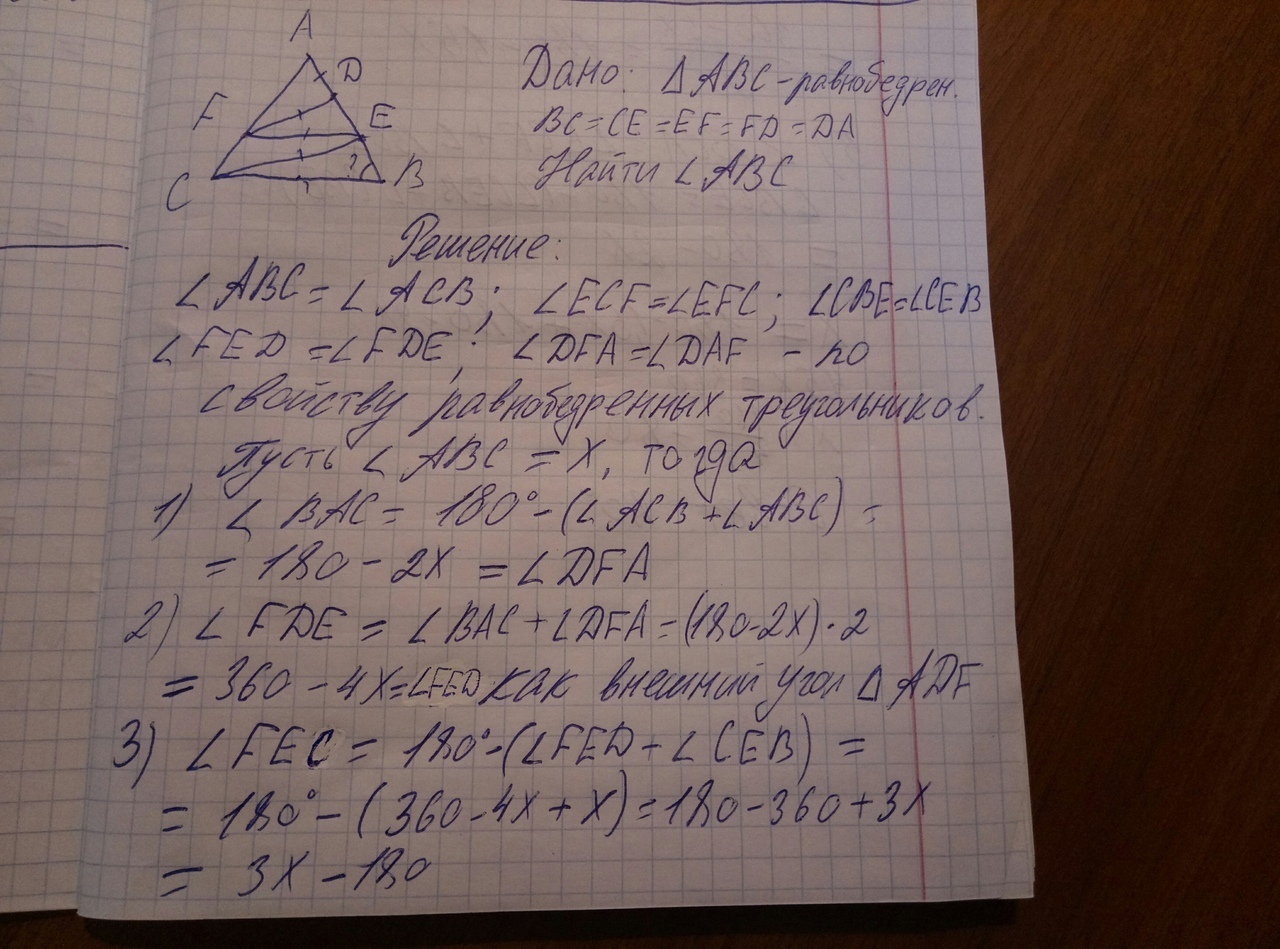 A
D
F
E
C
?
B
Дано: Δ ABC - равнобедрен.
BC = CE = EF = FD = DA
Найти ∠ ABC
Решение:
∠ ABC = ∠ ACB; ∠ECF = ∠EFC; ∠CBE = ∠CEB
∠ FED = ∠FDE; ∠ DFA = ∠DAF - по
свойству равнобедренных треугольников.
Пусть ∠ ABC = X, тогда
1) ∠ BAC = 180° - (∠ ACB + ∠ ABC) =
= 180 - 2X = ∠ DFA
2) ∠ FDE = ∠ BAC + ∠DFA = (180-2X) · 2
= 360 - 4X = ∠FED как внешний угол Δ ADF
3) ∠ FEC = 180° - (∠FED + ∠ CEB) =
= 180° - (360 - 4X + X) = 180 - 360 + 3X
= 3X - 180